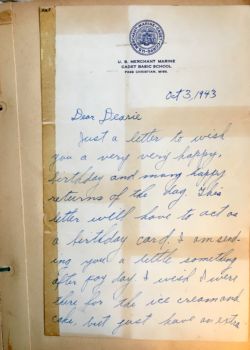 U. S. MERCHANT MARINE
CADET BASIC SCHOOL
PASS CHRISTIAN, MISS.
Oct 3, 1943
Dear Dearie
Just a letter to wish
you a very very happy
birthday and many happy
returns of the day. This
letter will have to act as
a birthday card. I am send-
ing you a little something
after pay day. I wish I were
there for the ice cream and
cake, but just have an extra